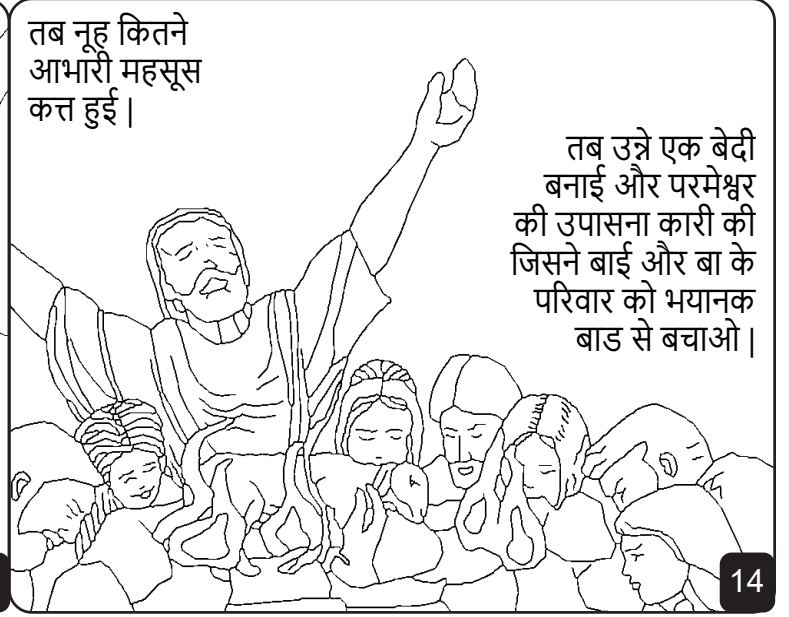 तब नूह कितने
आभारी महसूस
कत्त हुई |
तब उन्ने एक बेदी
बनाई और परमेश्वर
की उपासना कारी की
जिसने बाई और बा के
परिवार को भयानक
बाड से बचाओ |
14